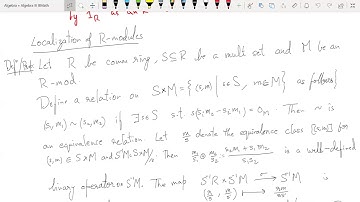 Algebra • Algebra III BMath
by 1_R as an
Localization of R-modules
Def/Prop Let R be comm ring, S⊆R be a mult set and M be an
R-mod.
Define a relation on S×M = {(s,m) | s∈S, m∈M} as follows
(s₁,m₁) ~ (s₂,m₂) if ∃ s∈S s.t. s(s₁m₂ − s₂m₁) = 0_M. Then ~ is
an equivalence relation. Let m/s denote the equivalence class [(s,m)] for
(s,m) ∈ S×M and S⁻¹M := S×M/~. Then m₁/s₁ ⊕ m₂/s₂ = s₂m₁ + s₁m₂ / s₁s₂ is a well-defined
binary operator on S⁻¹M. The map S⁻¹R × S⁻¹M → S⁻¹M is
(r/s, m/s') ↦ rm/ss'